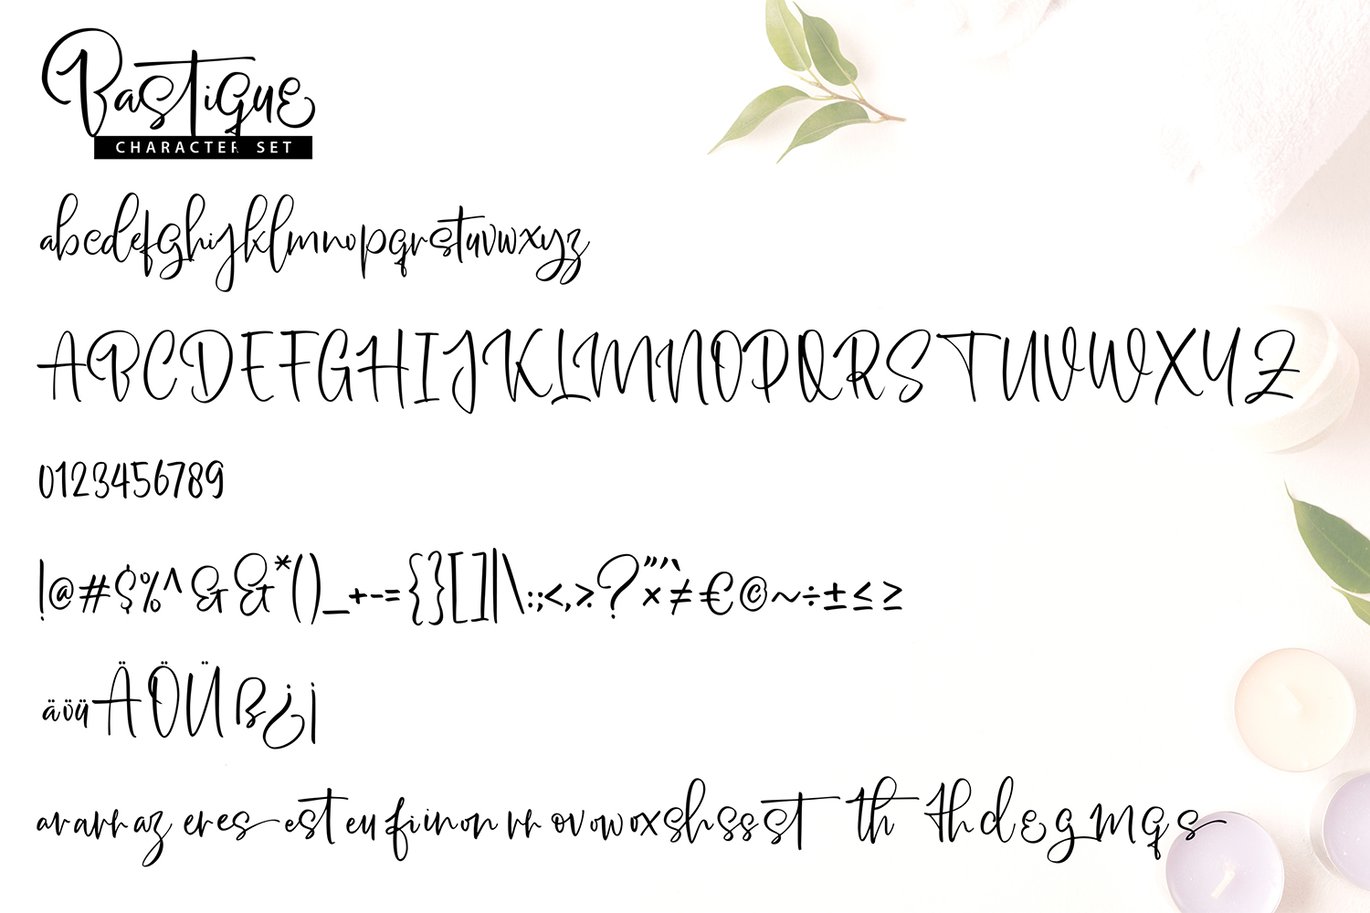 Bastique
CHARACTER SET
abcdefghijklmnopqrstuvwxyz
ABCDEFGHIJKLMNOPQRSTUVWXYZ
0123456789
!@#$%^&&*()_+-={}[]|\:;<,>.?"'`×≠€©~÷±≤≥
äöüÄÖÜß¿¡
ar av arr az er es est eu fi ii in on rr ov ow ox sh ss st th th d e g m q s